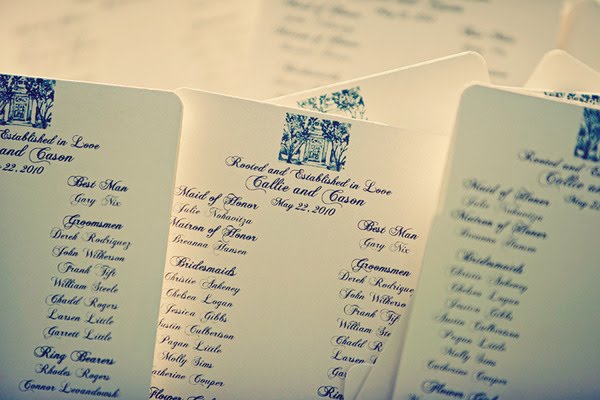 Rooted and Established in Love
and Cason
22, 2010
Best Man
Gary Nix
Groomsmen
Derek Rodriguez
John Wilkerson
Frank Fift
William Steele
Chadd Rogers
Larsen Little
Garrett Little
Ring Bearers
Rhodes Rogers
Connor Levandowski
Rooted and Established in Love
Callie and Cason
May 22, 2010
Maid of Honor
Julie
Matron of Honor
Breanna Hansen
Bridesmaids
Christie Ankeney
Chelsea Logan
Jessica Gibbs
Justin Culbertson
Pagan Little
Molly Sims
Catherine Couper
Best Man
Gary Nix
Groomsmen
Derek Rodrigue
John Wilkerson
Frank Fift
William Ste
Chadd R
Larsen L
Garre
Ring
Rooted and Established in
Callie a
May 2
Maid of Honor
Julie
Matron of Honor
Breanna Hansen
Bridesmaids
Christie Ankeney
Chelsea Logan
Jessica Gibbs
Justin Culbertson
Pagan Little
Molly Sims
Catherine Couper
Flower